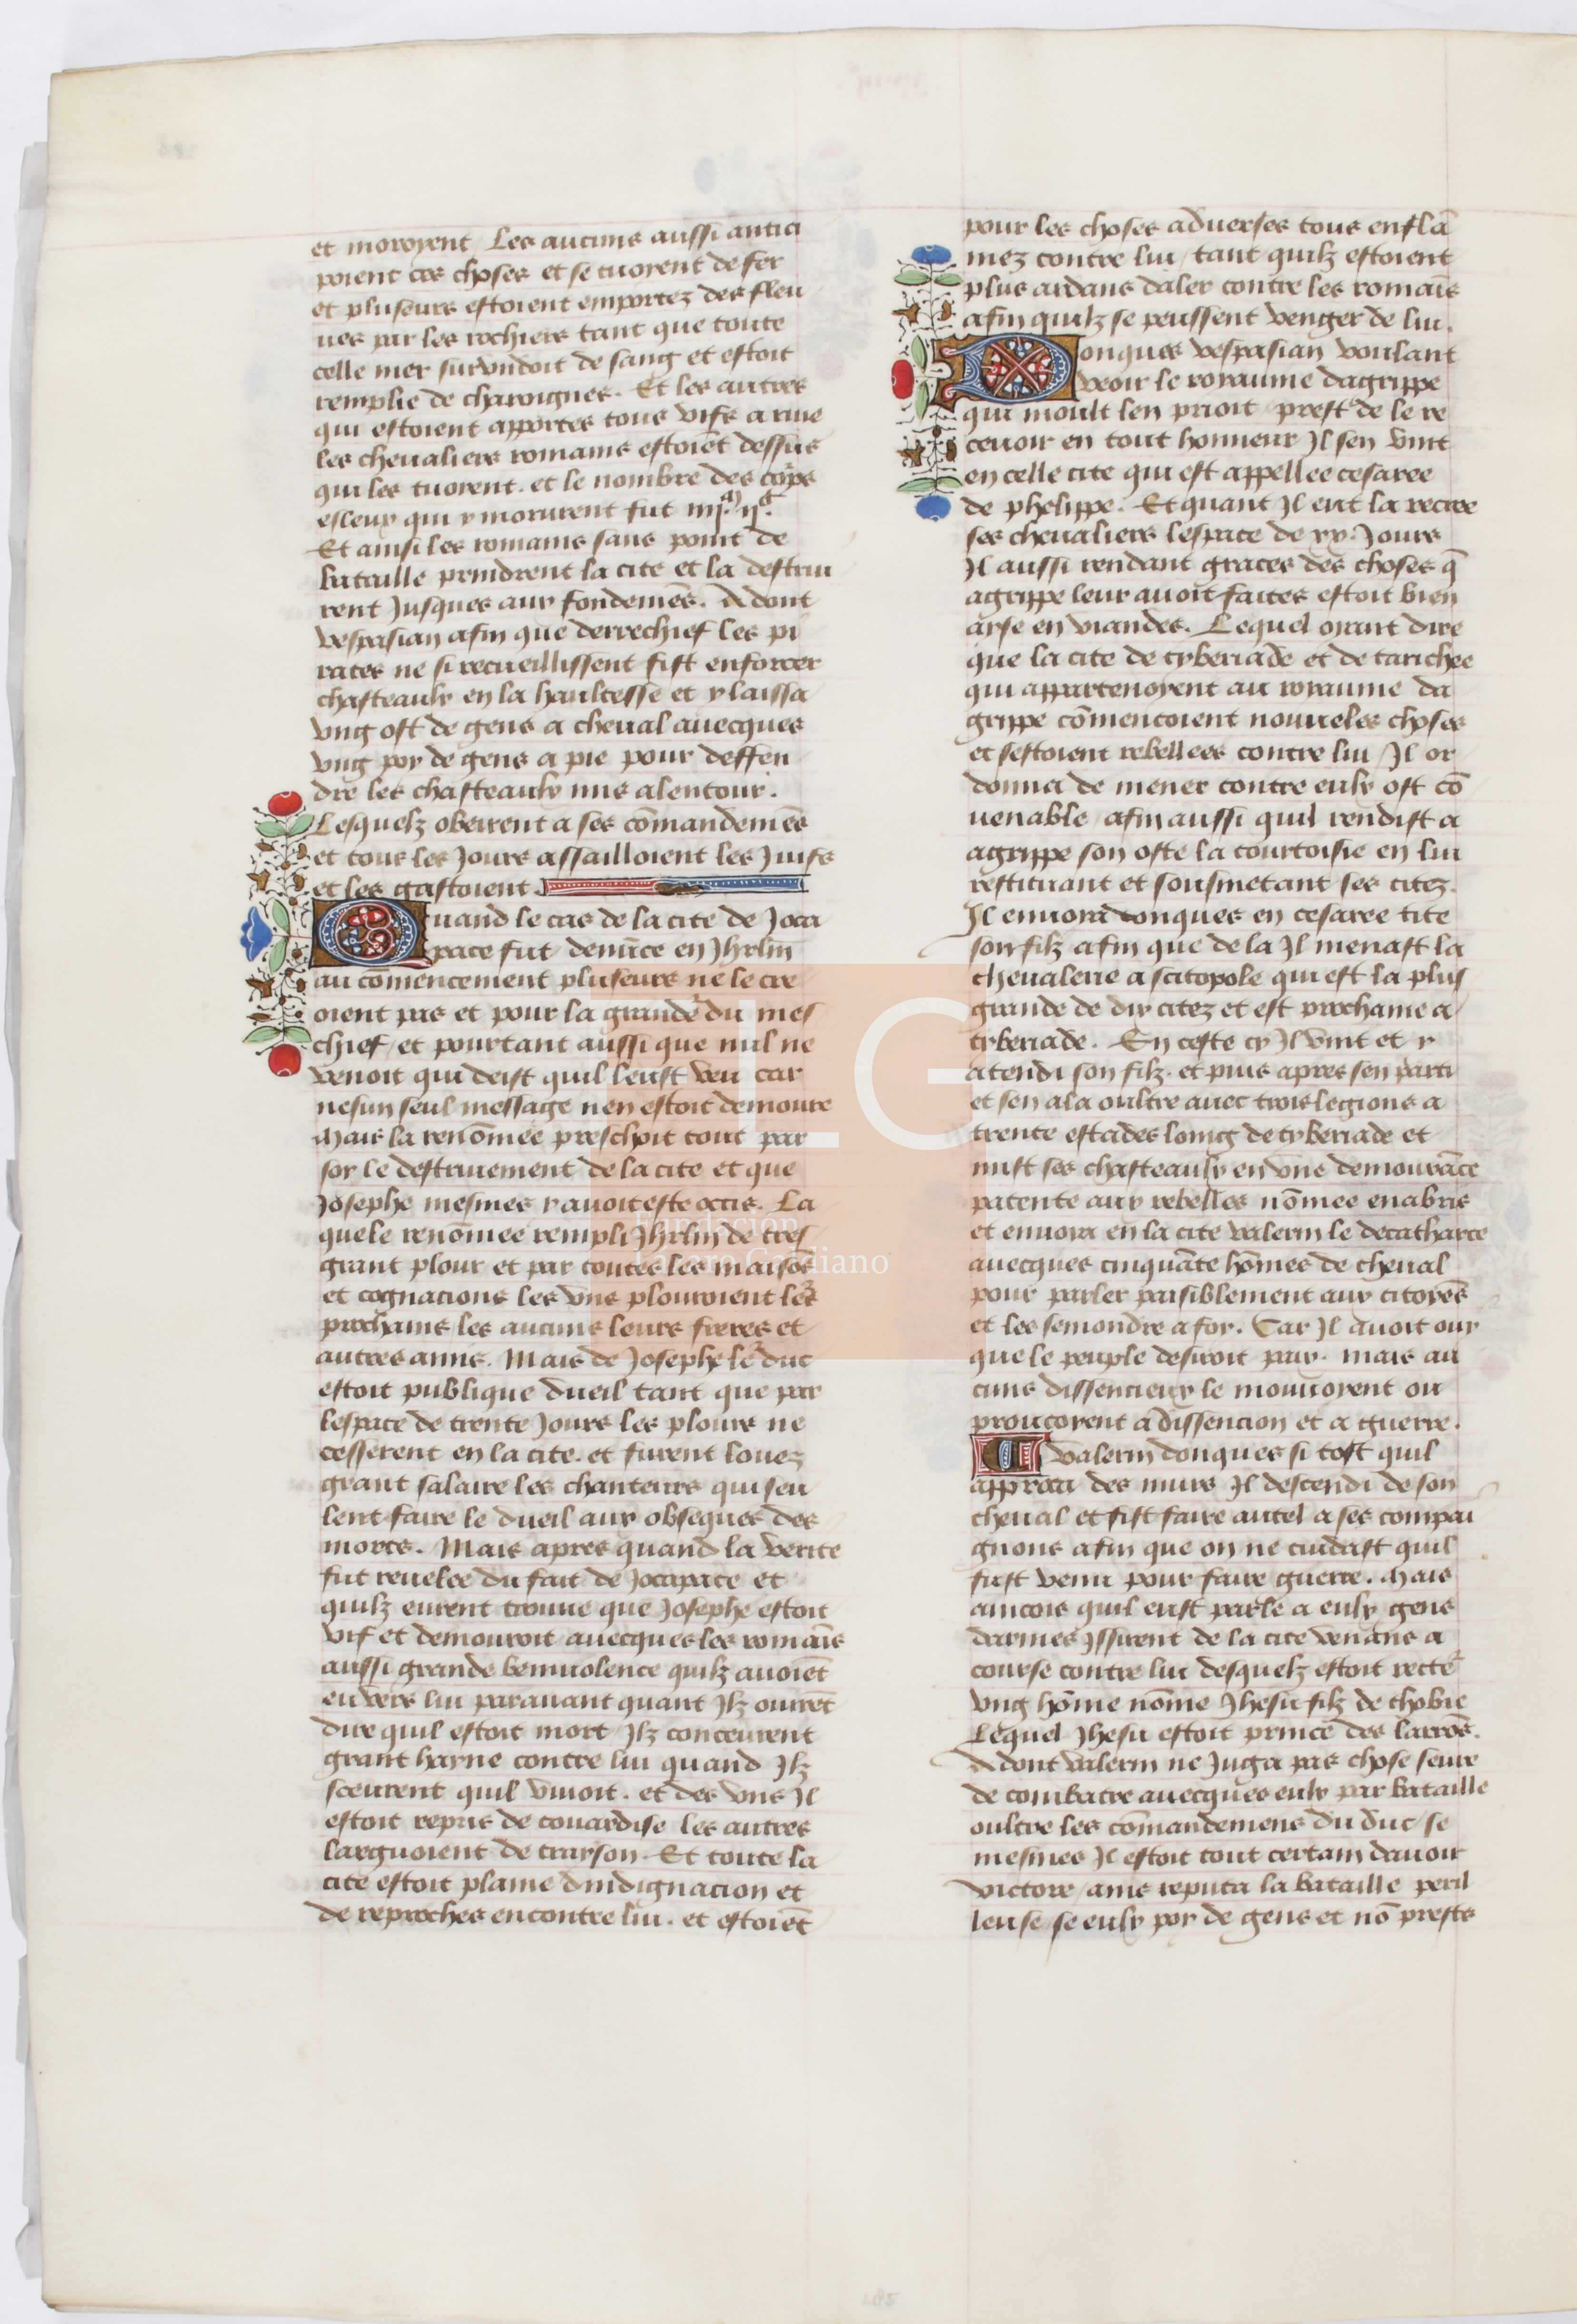 et moroyent Les aucuns aussi antici
poient ces choses et se tuoyent de fer
et pluseurs estoient emportez des fleu
ues par les rochiers tant que toute
celle mer surundoit de sang et estoit
remplie de charoignes. Et les autres
qui estoient apportes tous vifs a riue
les cheualiers romains estoiēt dessus
qui les tuoient. et le nombre des corps
esleuz qui y morurent fut
Et ainsi les romains sans point de
bataille prindrent la cite et la destrui
rent Jusques aux fondemēs. Adont
vespasian afin que derrechief les pi
rates ne si recueillissent fist enforcer
chasteaulx en la haultesse et y laissa
vng ost de gens a cheual auecques
vng poy de gens a pie pour deffen
dre les chasteaulx mis alentour.
Lesquelz obeirent a ses cōmandemēs
et tous les Jours assailloient les Juifs
et les gastoient
Quand le cas de la cite de Joca
pace fut denūce en Jhrlm̄
au cōmencement pluseurs ne le cre
oient pas et pour la grandeᵉ du mes
chief et pourtant aussi que nul ne
venoit qui deist quil leust veu car
nesun seul message nen estoit demoure
Mais la renōmee preschoit tout par
soy le destruiement de la cite et que
Josephe mesmes y auoit este occis. La
quele renōmee rempli Jhrlm̄ de tres
grant plour et par toutes les maisōs
et cognacions les vns plouroient leᵉs
prochains les aucuns leurs freres et
autres amis. Mais de Josephe leᵉ duc
estoit publique dueil tant que par
lespace de trente Jours les plours ne
cesserent en la cite. et furent louez
grant salaire les chanterres qui seu
lent faire le dueil aux obseques des
mors. Mais apres quand la verite
fut reuelee du fait de Jocapace et
quilz eurent trouue que Josephe estoit
vif et demouroit auecques les romaīs
aussi grande beniuolence quilz auoiēt
en vers lui parauant quant Ilz ouirēt
dire quil estoit mort Ilz conceurent
grant hayne contre lui quand Ilz
sceurent quil viuoit. et des vns Il
estoit repris de couardise les autres
larguoient de trayson. Et toute la
cite estoit plaine dindignacion et
de reproches encontre lui. et estoiēt
pour les choses aduerses tous enflā
mez contre lui tant quilz estoient
plus ardans daler contre les romaīs
afin quilz se peussent venger de lui.
Donques vespasian voulant
veoir le royaume dagrippe
qui moult len prioit prest de le re
ceuoir en tout honneur Il sen vint
en celle cite qui est appellee cesaree
de phelippe. Et quant Il eut la recree
ses cheualiers lespace de xx. Jours
Il aussi rendant graces des choses q̄
agrippe leur auoit faites estoit bien
ayse en viandes. Lequel oyant dire
que la cite de tyberiade et de tarichee
qui appartenoyent au royaume da
grippe cōmencoient nouueles choses
et sestoient rebellees contre lui Il or
donna de mener contre eulx ost cō
uenable afin aussi quil rendist a
agrippe son oste la courtoisie en lui
restituant et sousmetant ses citez.
Il enuoia donques en cesaree tite
son filz afin que de la Il menast la
cheualerie a scitopole qui est la plus
grande de dix citez et est prochaine a
tyberiade. En ceste cy Il vint et y
atendi son filz. et puis apres sen parti
et sen ala oultre auec trois legions a
trente estades loing de tyberiade et
mist ses chasteaulx en vne demourāce
patente aux rebelles nōmee enabris
et enuoia en la cite valerin le decatharce
auecques cinquāte hōmes de cheual
pour parler paisiblement aux citoyēs
et les semondre a foy. Car Il auoit ouy
que le peuple desiroit paix. mais au
cuns dissencieux le mouuoyent ou
prouocoyent a dissencion et a guerre.
Valerin donques si tost quil
approca des murs Il descendi de son
cheual et fist faire autel a ses compai
gnons afin que on ne cuidast quil
fust venu pour faire guerre. Mais
aincois quil eust parle a eulx gens
darmes Issirent de la cite venans a
course contre lui desquelz estoit recteᵉ
vng hōme nōme Jhesu filz de thobie
Lequel Jhesu estoit prince des larrōs.
Adont valerin ne Juga pas chose seure
de combatre auecques eulx par bataille
oultre les cōmandemens du duc se
mesmes Il estoit tout certain dauoir
victore ains reputa la bataille peril
leuse se eulx poy de gens et nō prests